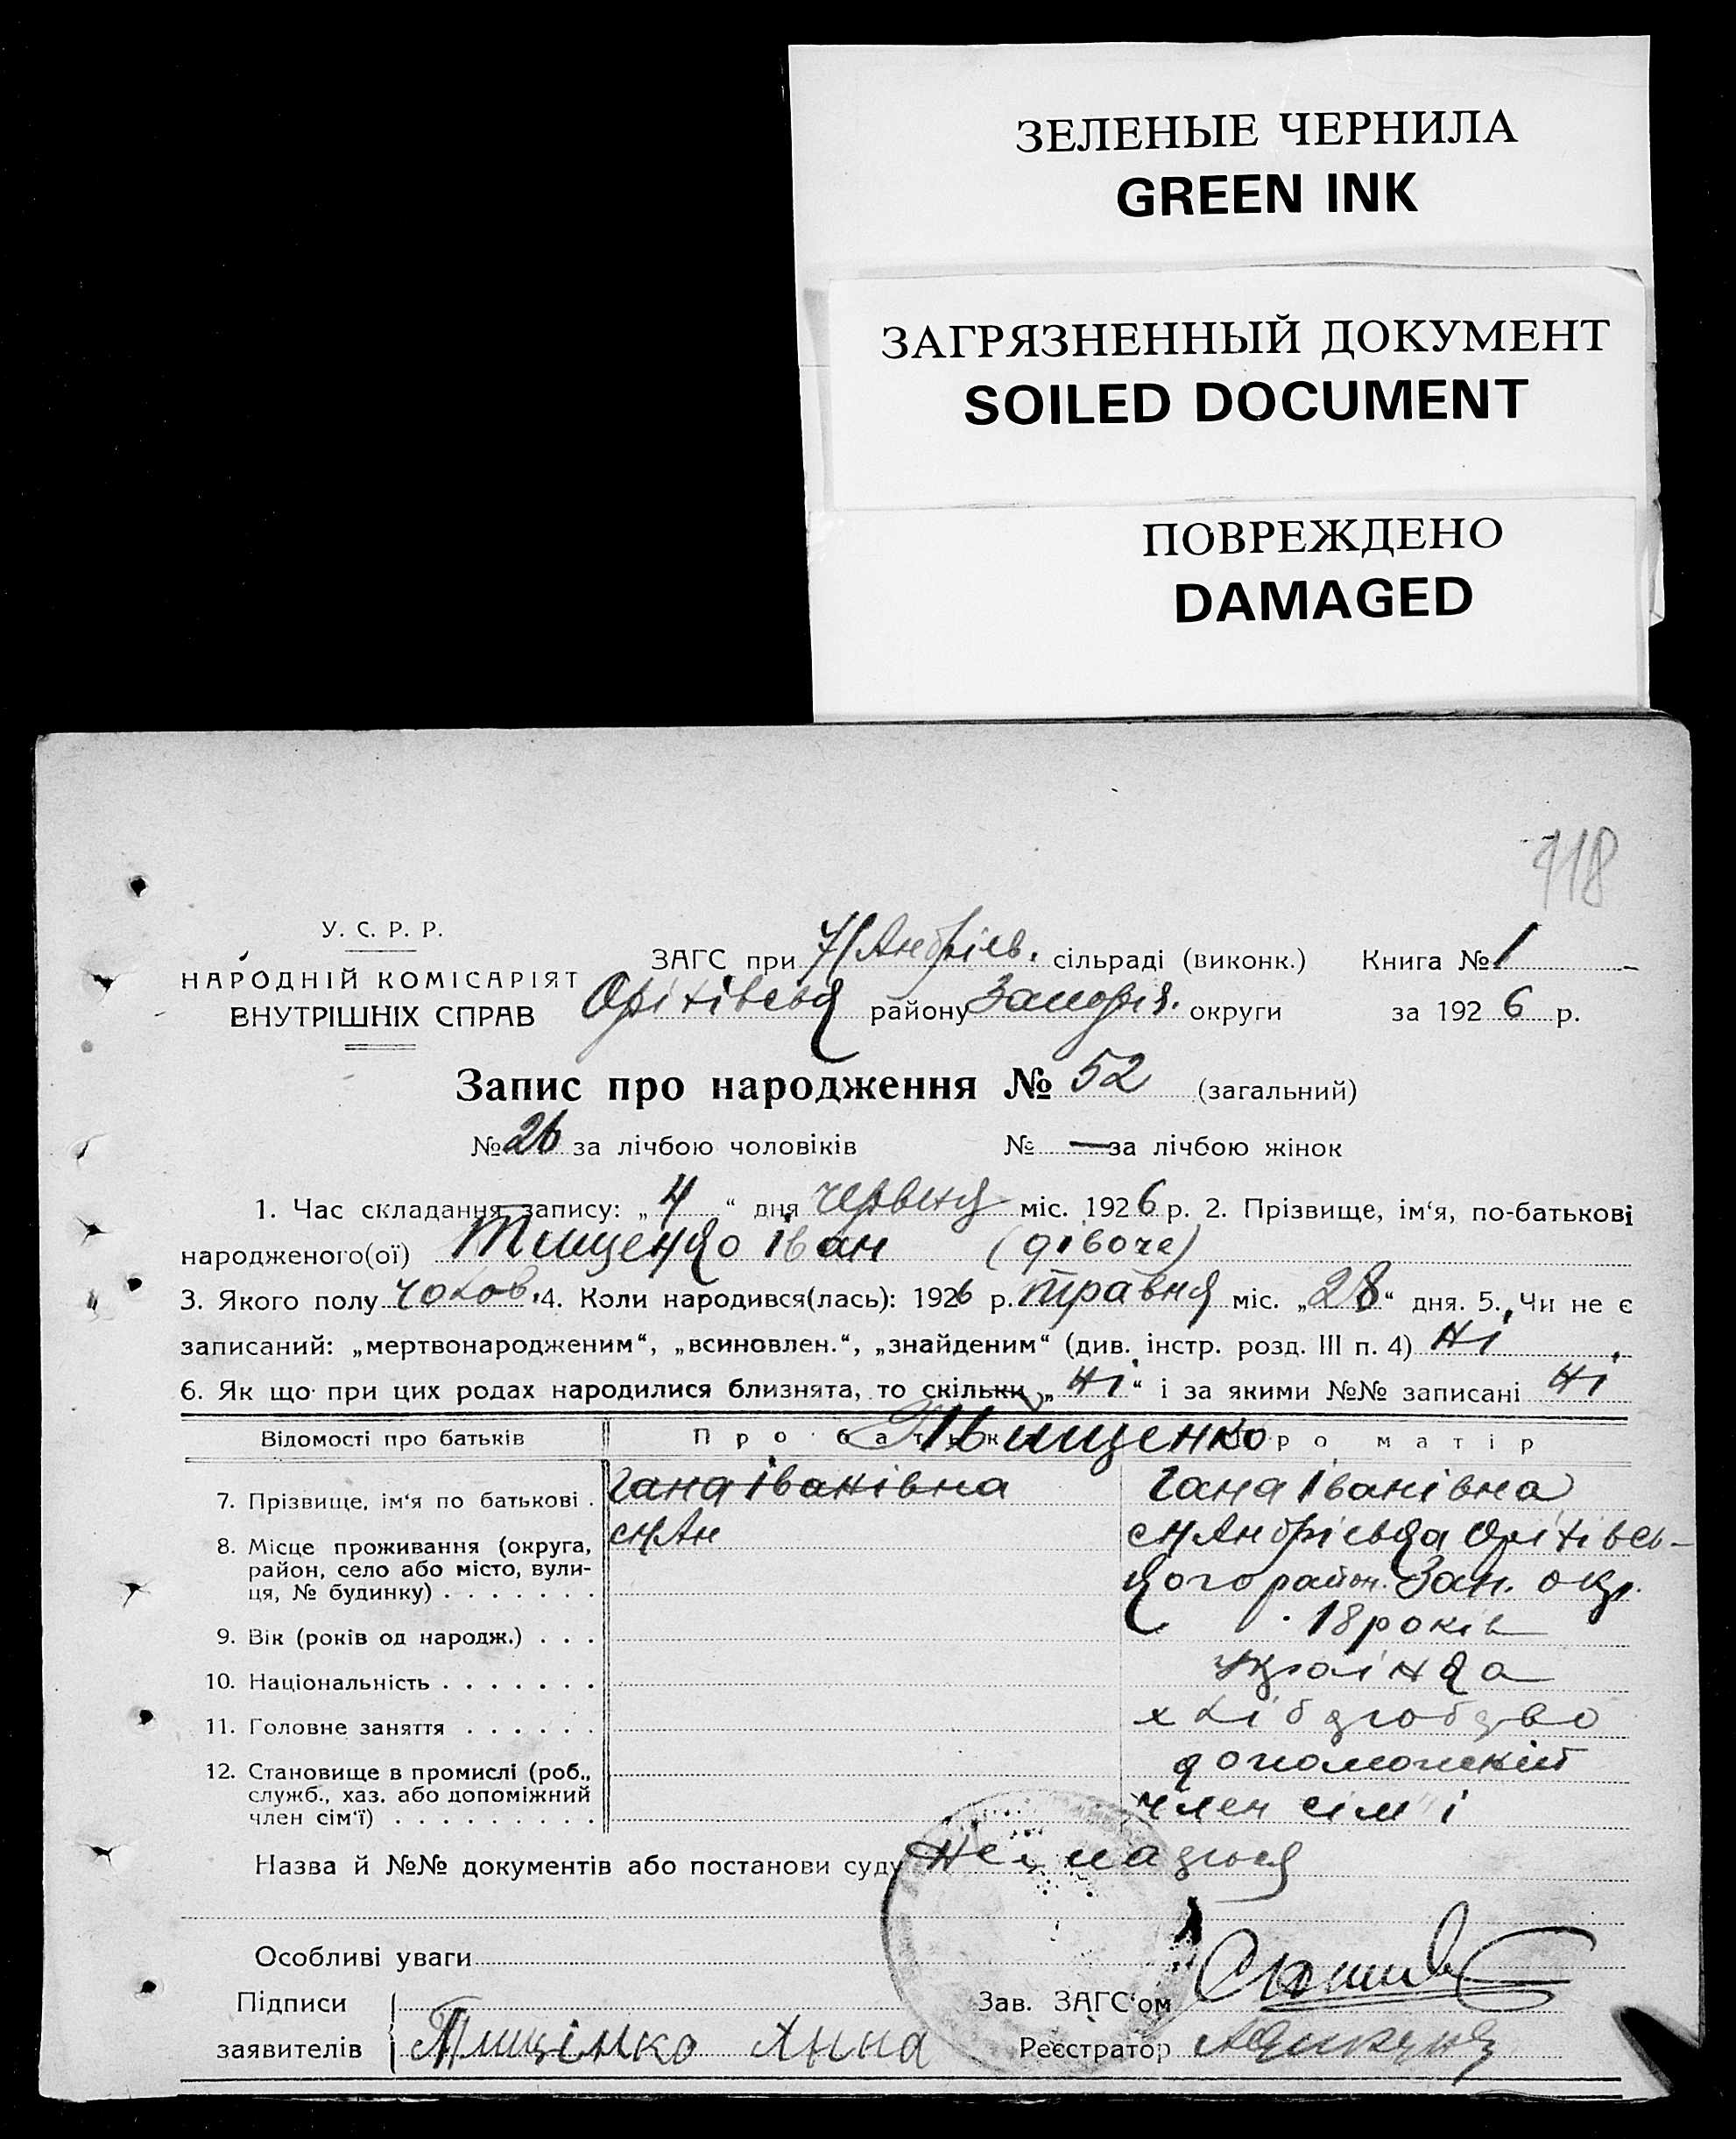 ЗЕЛЕНЫЕ ЧЕРНИЛА
GREEN INK
ЗАГРЯЗНЕННЫЙ ДОКУМЕНТ
SOILED DOCUMENT
ПОВРЕЖДЕНО
DAMAGED
118
У. С. Р. Р.
НАРОДНІЙ КОМІСАРІЯТ
ВНУТРІШНІХ СПРАВ
ЗАГС при Андріїв. сільраді (виконк.) Книга № 1
району Запоріз. округи за 1926 р.
Запис про народження № 52 (загальний)
№ 26 за лічбою чоловіків № — за лічбою жінок
1. Час складання запису: „4“ дня червня міс. 1926 р. 2. Прізвище, ім‘я, по-батькові
народженого(ої) Тищенко Іван (дівоче)
3. Якого полу чолов. 4. Коли народився(лась): 1926 р. травня міс. „28“ дня. 5. Чи не є
записаний: „мертвонародженим“, „всиновлен.“, „знайденим“ (див. інстр. розд. III п. 4) Ні
6. Як що при цих родах народилися близнята, то скільки „Ні“ і за якими №№ записані Ні
Відомості про батьків Про батька Тищенко Про матір
7. Прізвище, ім‘я по батькові . Гана Іванівна Гана Іванівна
8. Місце проживання (округа,
район, село або місто, вули-
ця, № будинку) . . . . . . .
Оріхівсь-
кого район. Зап. окр.
9. Вік (років од народж.) . . . 18 років
10. Національність . . . . . . . українка
11. Головне заняття . . . . . .
12. Становище в промислі (роб.,
служб., хаз. або допоміжний
член сім‘ї) . . . . . . . . .
член сім"ї
Назва й №№ документів або постанови суду
Особливі уваги
Підписи
заявителів Тищінко Анна
Зав. ЗАГС‘ом
Реєстратор